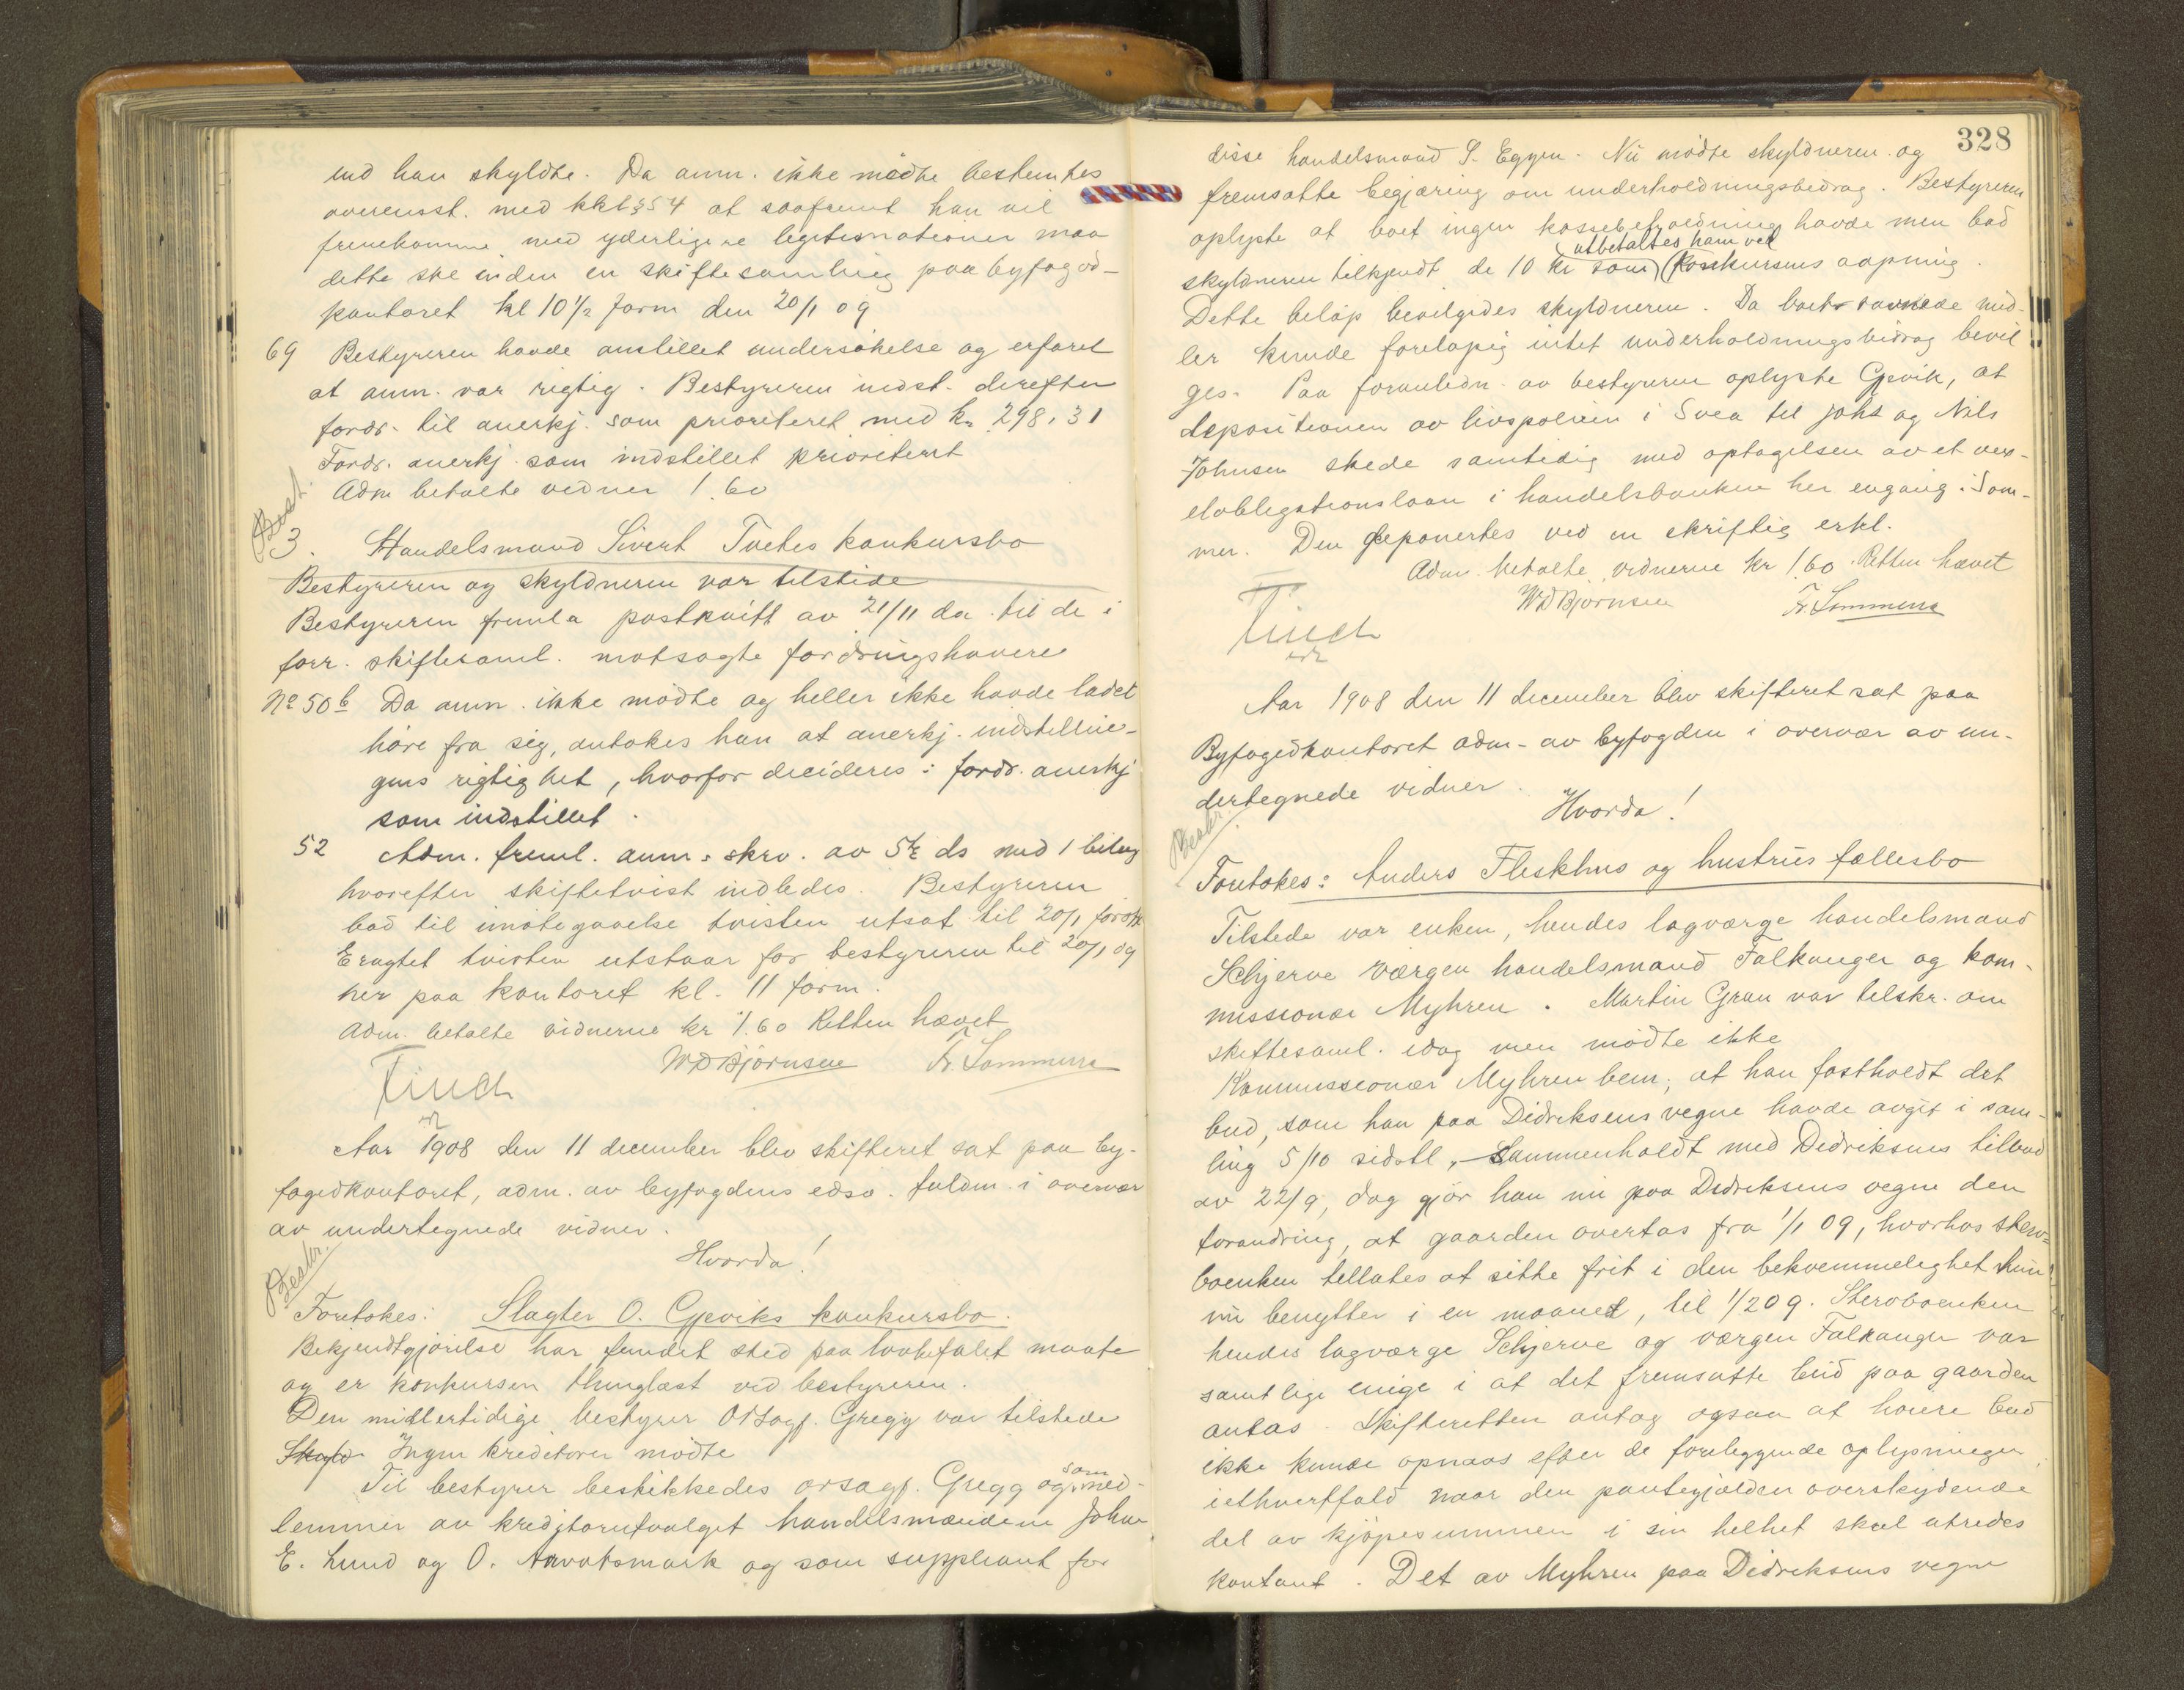 end han skyldte. Da anm. ikke mødte bestemtes
overensst. med kkl § 54 at saafremt han vil
fremkomme med yderligere legitimationer maa
dette ske inden en skiftesamling paa byfoged-
kontoret kl 10 1/2 form den 20/1 09
69 Bestyreren havde anstillet undersøkelse og erfaret
at anm. var rigtig. Bestyreren indst. derefter
fordr. til anerkj. som prioriteret med kr 298,31
Fordr. anerkj som indstillet prioritert
Adm betalte vidner 1.60
Beskr.
3. Handelsmand Sivert Tvetes konkursbo
Bestyreren og skyldneren var tilstede
Bestyreren fremla postkvitt av 21/11 da til de i
forr. skiftesaml. motsagte fordringshavere
No 50 b Da anm. ikke mødte og heller ikke havde ladet
høre fra sig, antokes han at anerkj. indstillin-
gens rigtighet, hvorfor decideres: fordr. anerkj
som indstillet.
52 Adm. freml. anm.s skrv. av 5/12 ds med 1 bilag
hvorefter skiftetvist indledes. Bestyreren
bad til imøtegaaelse tvisten utsat til 20/1 førstk
Eragtet tvisten utstaar for bestyreren til 20/1 09
her paa kontoret kl. 11 form.
Adm. betalte vidnerne kr 1.60 Retten hævet
Finch WDBjørnsen Fr. Sommerse
Aar 1908 den 11 december blev skifteret sat paa by-
fogedkontoret, adm. av byfogdens edsv. fuldm. i overvær
av undertegnede vidner.
Hvorda!
Beskr.
Foretokes: Slagter O. Gjeviks konkursbo.
Bekjendtgjørelse har fundet sted paa lovbefalet maate
og er konkursen thinglæst ved bestyreren.
Den midlertidige bestyrer Ovsagf. Gregg var tilstede
Skyld Ingen kreditorer mødte
Til bestyrer beskikkedes ovsagf. Gregg og som med-
lemmer av kreditorutvalget handelsmændene John
E. Lund og O. Arvotsmark og som suppleant for
328
disse handelsmand S. Eggen. Nu mødte skyldneren og
fremsatte begjæring om underholdningsbidrag. Bestyreren
oplyste at boet ingen kassebeholdning havde men bad
utbetaltes ham ved
skyldneren tilkjendt de 10 kr som konkursens aapning.
Dette beløp bevilgedes skyldneren. Da boet savnede mid-
ler kunde foreløpig intet underholdningsbidrag bevil
ges. Paa foranledn. av bestyreren oplyste Gjevik, at
depositionen av livspolicen i Svea til Johs og Nils
Johnsen skede samtidig med optagelsen av et vex-
elobligationslaan i handelsbanken her engang i som-
mer. Den deponertes ved en skriftlig erkl.
Adm. betalte vidnerne kr 1.60 Retten hævet
Finch WDBjørnsen Fr. Sommerse
Aar 1908 den 11 december blev skifteret sat paa
Byfogedkontoret adm. av byfogden i overvær av un-
dertegnede vidner.
Hvorda!
Beskr.
Foretokes: Anders Fleskhus og hustrus fællesbo
Tilstede var enken, hendes lagværge handelsmand
Schjerve værgen handelsmand Falkanger og kom-
missionær Myhren. Martin Gran var tilskr. om
skiftesaml. idag men mødte ikke
Kommissionær Myhren bem; at han fastholdt det
bud, som han paa Didriksens vegne havde avgit i sam-
ling 5/10 sidstl, sammenholdt med Didriksens tilbud
av 22/9, dog gjør han nu paa Didriksens vegne den
forandring, at gaarden overtas fra 1/1 09, hvorhos sterv-
boenken tillates at sitte frit i den bekvemmelighet hun
nu benytter i en maaned, til 1/2 09. Stervboenken
hendes lagværge Schjerve og værgen Falkanger var
samtlige enige i at det fremsatte bud paa gaarden
antas. Skifteretten antog ogsaa at høiere bud
ikke kunde opnaaes efter de foreliggende oplysninger
iethvertfald naar den pantegjælden overskydende
del av kjøpesummen i sin helhet skal utredes
kontant. Det av Myhren paa Didriksens vegne